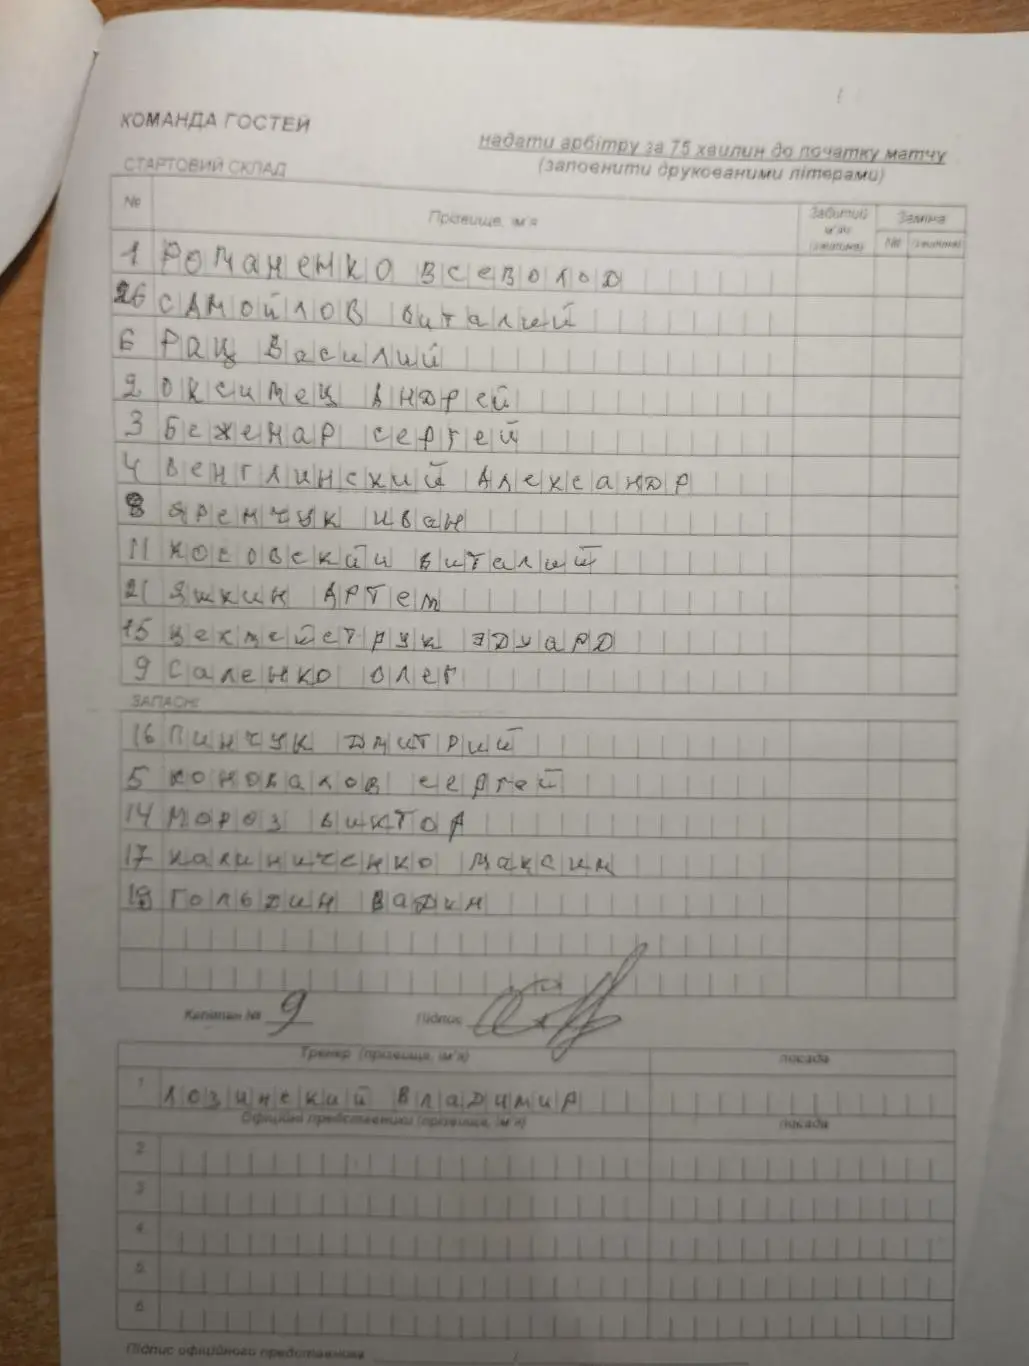 КОМАНДА ГОСТЕЙ
надати арбітру за 75 хвилин до початку матчу
(заповнити друкованими літерами)
СТАРТОВИЙ СКЛАД
№ Прізвище, ім'я Забитий м'яч (хвилина) Заміна
№ (хвилина)
1 РОМАНЕНКО ВСЕВОЛОД
26 САМОЙЛОВ Виталий
6 РАЦ Василий
2 ОКСИМЕЦ АНДРЕЙ
3 БЕЖЕНАР СЕРГЕЙ
4 ВЕНГЛИНСКИЙ АЛЕКСАНДР
8 ЯРЕМЧУК ИВАН
11 КОСОВСКИЙ ВИТАЛИЙ
21 ЯШКИН АРТЕМ
15 ЦЕХМЕЙСТРУК ЭДУАРД
9 САЛЕНКО ОЛЕГ
ЗАПАСНІ
16 ПИНЧУК ДМИТРИЙ
5 КОНОВАЛОВ СЕРГЕЙ
14 МОРОЗ ВИКТОР
17 КАЛИНИЧЕНКО МАКСИМ
18 ГОЛЬДИН ВАДИМ
Капітан № 9 Підпис
Тренер (прізвище, ім'я) посада
1 ЛОЗИНСКИЙ ВЛАДИМИР
Офіційні представники (прізвище, ім'я) посада
2
3
4.
5.
6
Підпис офіційного представника